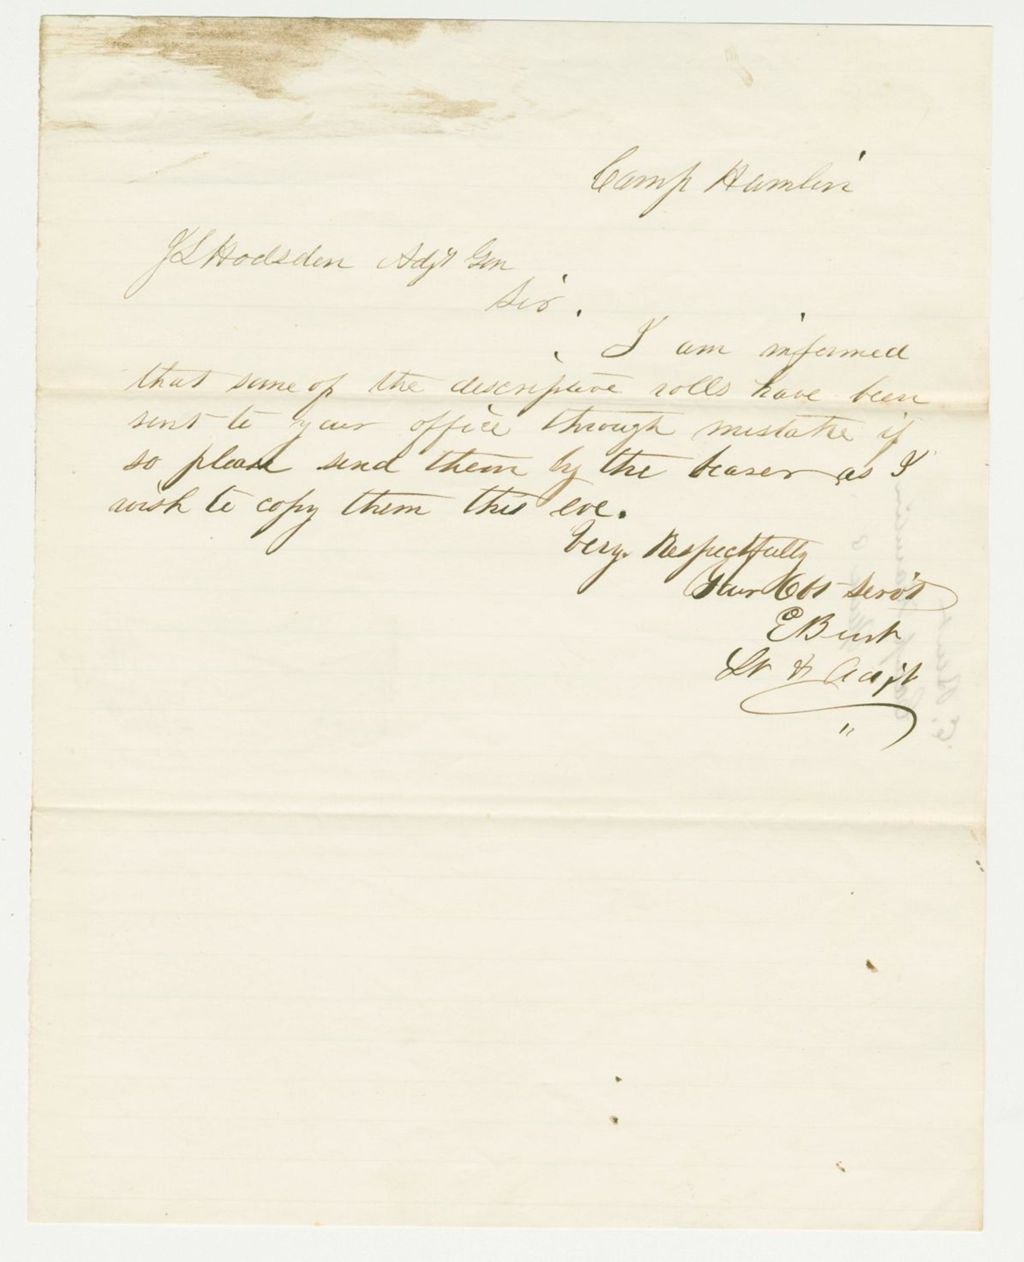 Camp Hamlin
J L Hodsden Adjt Gen
Sir.
I am informed
that some of the descriptive rolls have been
sent to your office through mistake if
so please send them by the bearer as I
wish to copy them this eve.
Very Respectfully
Your Obt Servt
E
Lt & Adjt